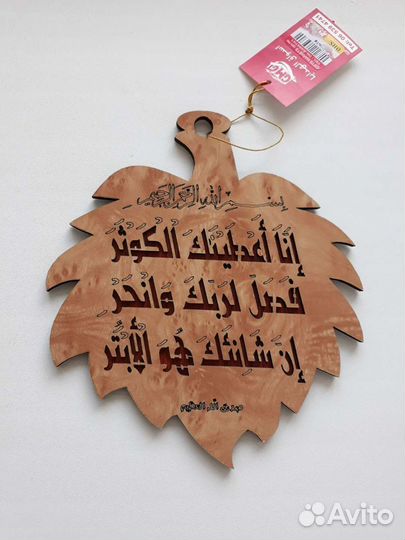 بسم الله الرحمن الرحيم
إنا أعطينك الكوثر
فصل لربك وانحر
إن شانئك هو الأبتر
صدق الله العظيم
اسواق الهدايا
Avito